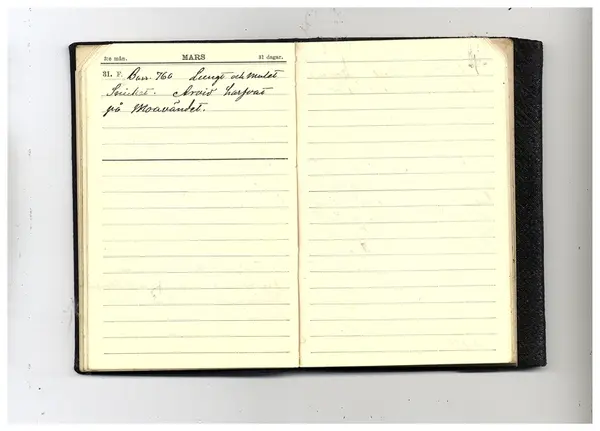 3:e mån. MARS 31 dagar.
31. F. Barr. 760 Lungt och mulet
Arvid harfvat
på Moavändet.